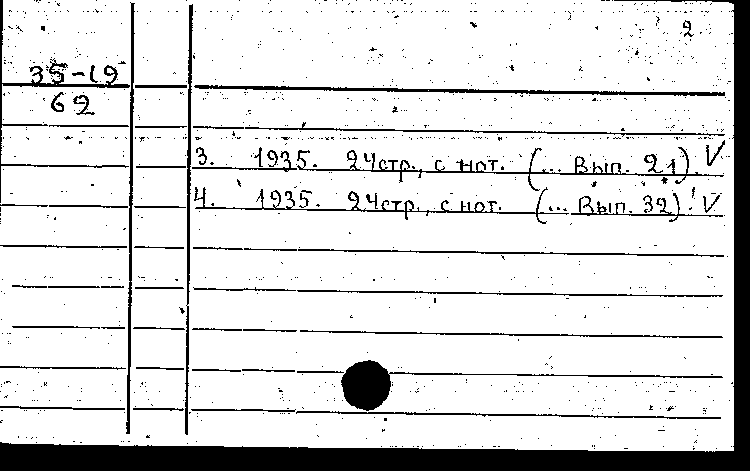 2
35-19
62
3. 1935. 24стр., с нот. (... Вып. 21). V
4. 1935. 24стр., с нот. (... Вып. 32). V